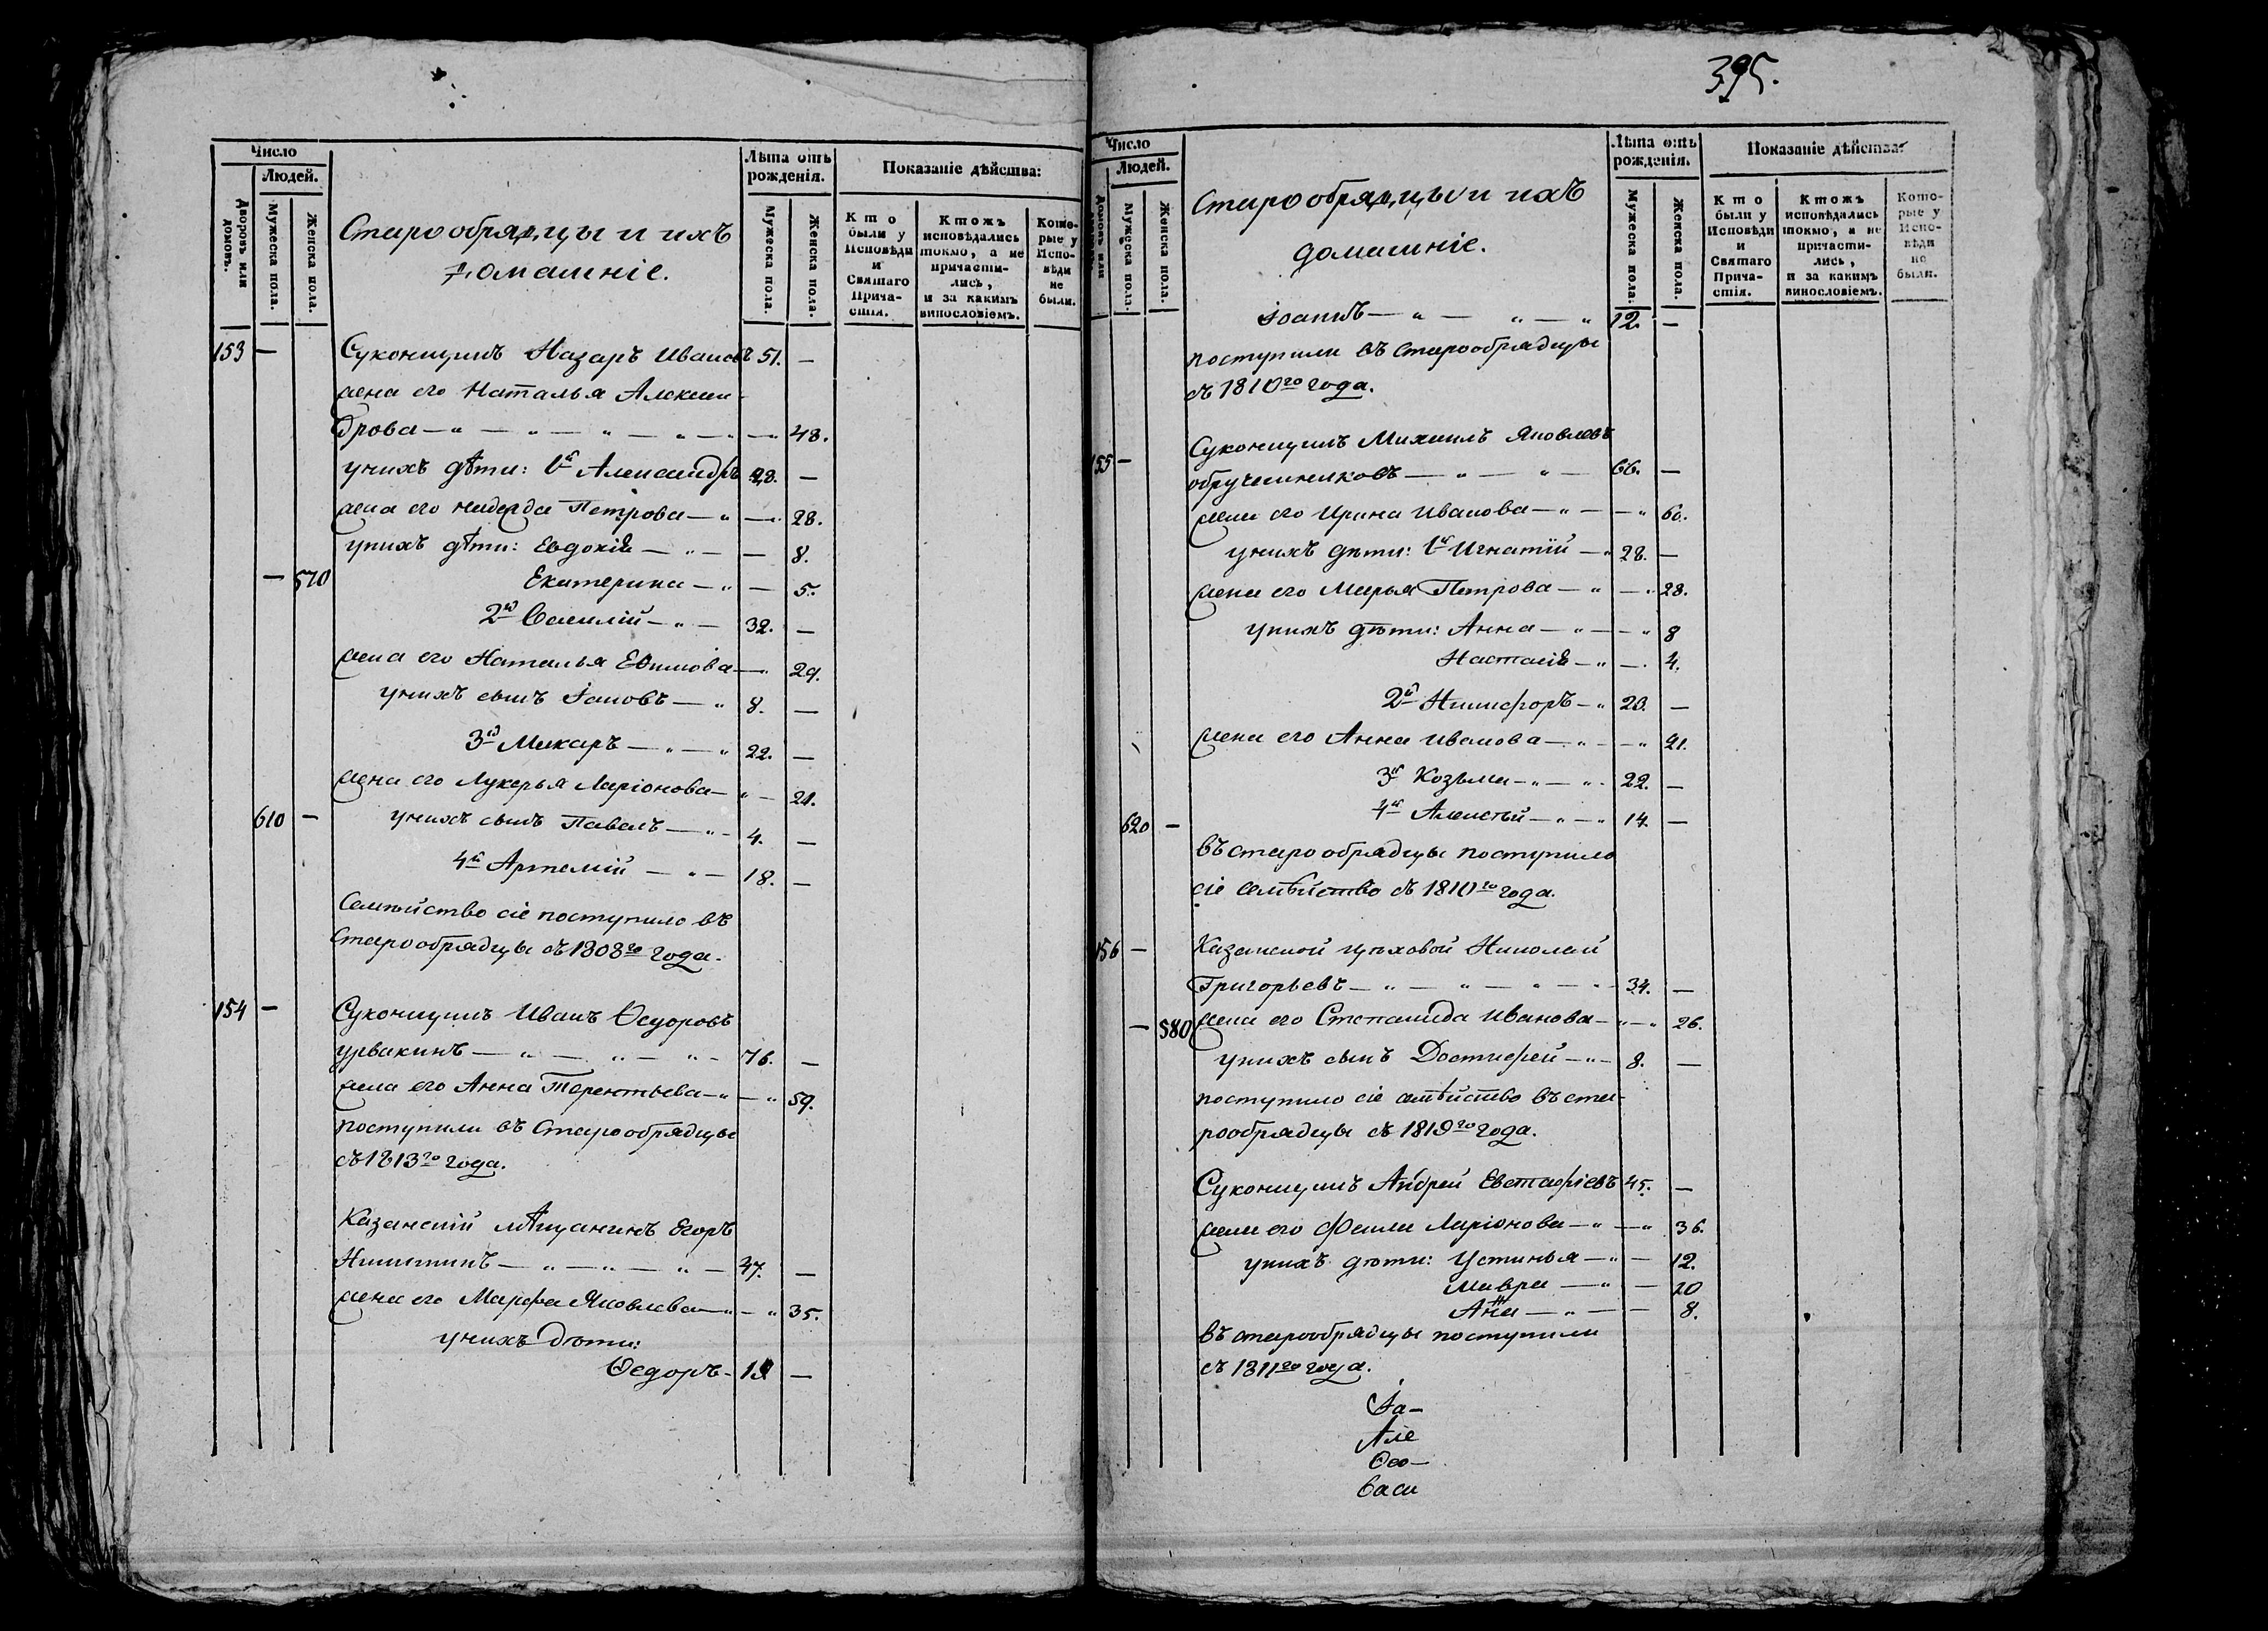 Число
Людей.
Дворовъ или домовъ.
Мужеска пола.
Женска пола.
Старообрядцы и ихъ
домашніе.
Лѣта отъ
рожденія.
Мужеска пола.
Женска пола.
Показаніе дѣйства:
Кто были у Исповѣди и Святаго Прича-стія.
Ктожъ исповѣдались токмо, а не причасти-лись, и за какимъ винословіемъ.
Кото-рые у Испо-вѣди не были.
153 — Суконщикъ Назаръ Ивановъ 51. —
жена его Наталья Алексан-
дрова — „ — „ — „ — „ — „ — 48.
у нихъ дѣти: 1й Александръ 28. —
жена его Надежда Петрова — „ — 28.
у нихъ дѣти: Евдокія — „ — — 8.
— 570 Екатерина — „ — 5.
2й Василій — „ — 32. —
жена его Наталья Ефимова — 29.
у нихъ сынъ Іаковъ — „ 8. —
3й Макаръ — „ — „ 22. —
жена его Лукерья Ларіонова — „ — 21.
610 — у нихъ сынъ Павелъ — „ — 4. —
4й Артемій — „ — 18. —
Семейство сіе поступило въ
Старообрядцы съ 1808го года.
154 — Суконщикъ Иванъ Ѳедоровъ
Урвакинъ — „ — „ — „ — 76. —
жена его Анна Терентьева — „ — „ 59.
поступили въ Старообрядцы
съ 1813го года.
Казанскій мѣщанинъ Егоръ
Никитинъ — „ — „ — „ — 47. —
жена его Марфа Яковлева — „ — „ 35.
у нихъ дѣти:
Ѳедоръ — —
395.
Число
Людей.
Дворовъ или домовъ.
Мужеска пола.
Женска пола.
Старообрядцы и ихъ
домашніе.
Лѣта отъ
рожденія.
Мужеска пола.
Женска пола.
Показаніе дѣйства:
Кто были у Исповѣди и Святаго Прича-стія.
Ктожъ исповѣдались токмо, а не причасти-лись, и за какимъ винословіемъ.
Кото-рые у Испо-вѣди не были.
Іоаннъ — „ — „ — „ 12. —
поступили въ Старообрядцы
съ 1810го года.
155 — Суконщикъ Михаилъ Яковлевъ
Обручниковъ — „ — „ — 66. —
жена его Ирина Иванова — „ — — „ 60.
у нихъ дѣти: 1й Игнатій — „ 28. —
жена его Марья Петрова — „ — „ 28.
у нихъ дѣти: Анна — „ — — „ 8
Настасія — „ — 4.
2й Никифоръ — „ 23. —
жена его Анна Иванова — „ — — „ 21.
3й Козьма — „ — „ 22. —
620 — 4й Алексѣй — „ — „ 14. —
въ старообрядцы поступило
сіе семѣйство съ 1810го года.
156 — Казанской цѣховой Николай
Григорьевъ — „ — „ — „ — „ — 34. —
— 580 жена его Степанида Иванова — „ — „ 26.
у нихъ сынъ Достифей — „ — 8. —
поступило сіе семѣйство въ ста-
рообрядцы съ 1819го года.
Суконщикъ Андрей Евстафіевъ 45. —
жена его Фекла Ларіонова — „ — „ 36.
у нихъ дѣти: Устинья — „ — 12.
Мавра — „ — 10
Анна — „ — — 8.
въ старообрядцы поступили
съ 1811го года.
Іа-
Але
Ѳео-
Васи